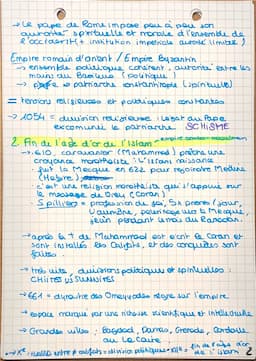 → Le pape de Rome impose peu à peu son
autorité spirituelle et morale à l'ensemble de
l'occident (≠ institution impériale avasé limité)
Empire romain d'orient / Empire Byzantin
→ ensemble politique cohérent, autorité entre les
mains du Basileus (politique)
→ patriarche (spirituelle)
= tensions religieuses et politiques constantes
→ 1054 = division religieuse : légat du Pape
excommunie le patriarche SCHISME
2. Fin de l'age d'or de l'Islam
→ 610, caravanier (Muhammad) prêche une
croyance monothéiste : l'islam naissance
→ fuit la Mecque en 622 pour rejoindre Médine
(Hégire)
→ c'est une religion monothéiste qui s'appuie sur
le message de Dieu (Coran)
→ 5 piliers = profession de foi, 5x prières/jour,
l'aumône, pélerinage vers la Mecque,
jeûn pendant le mois du Ramadan.
→ après la † du Muhammad est écrit le Coran et
sont installés les Califats, et des conquêtes sont
faites
→ très vite, divisions politiques et spirituelles :
CHIITES VS SUNNITES
→ 661 = dynastie des Omeyyades règne sur l'empire
→ espace marqué par une richesse scientifique et intellectuelle
→ Grandes villes : Bagdad, Damas, Grenade, Cordoue
ou Le Caire
2